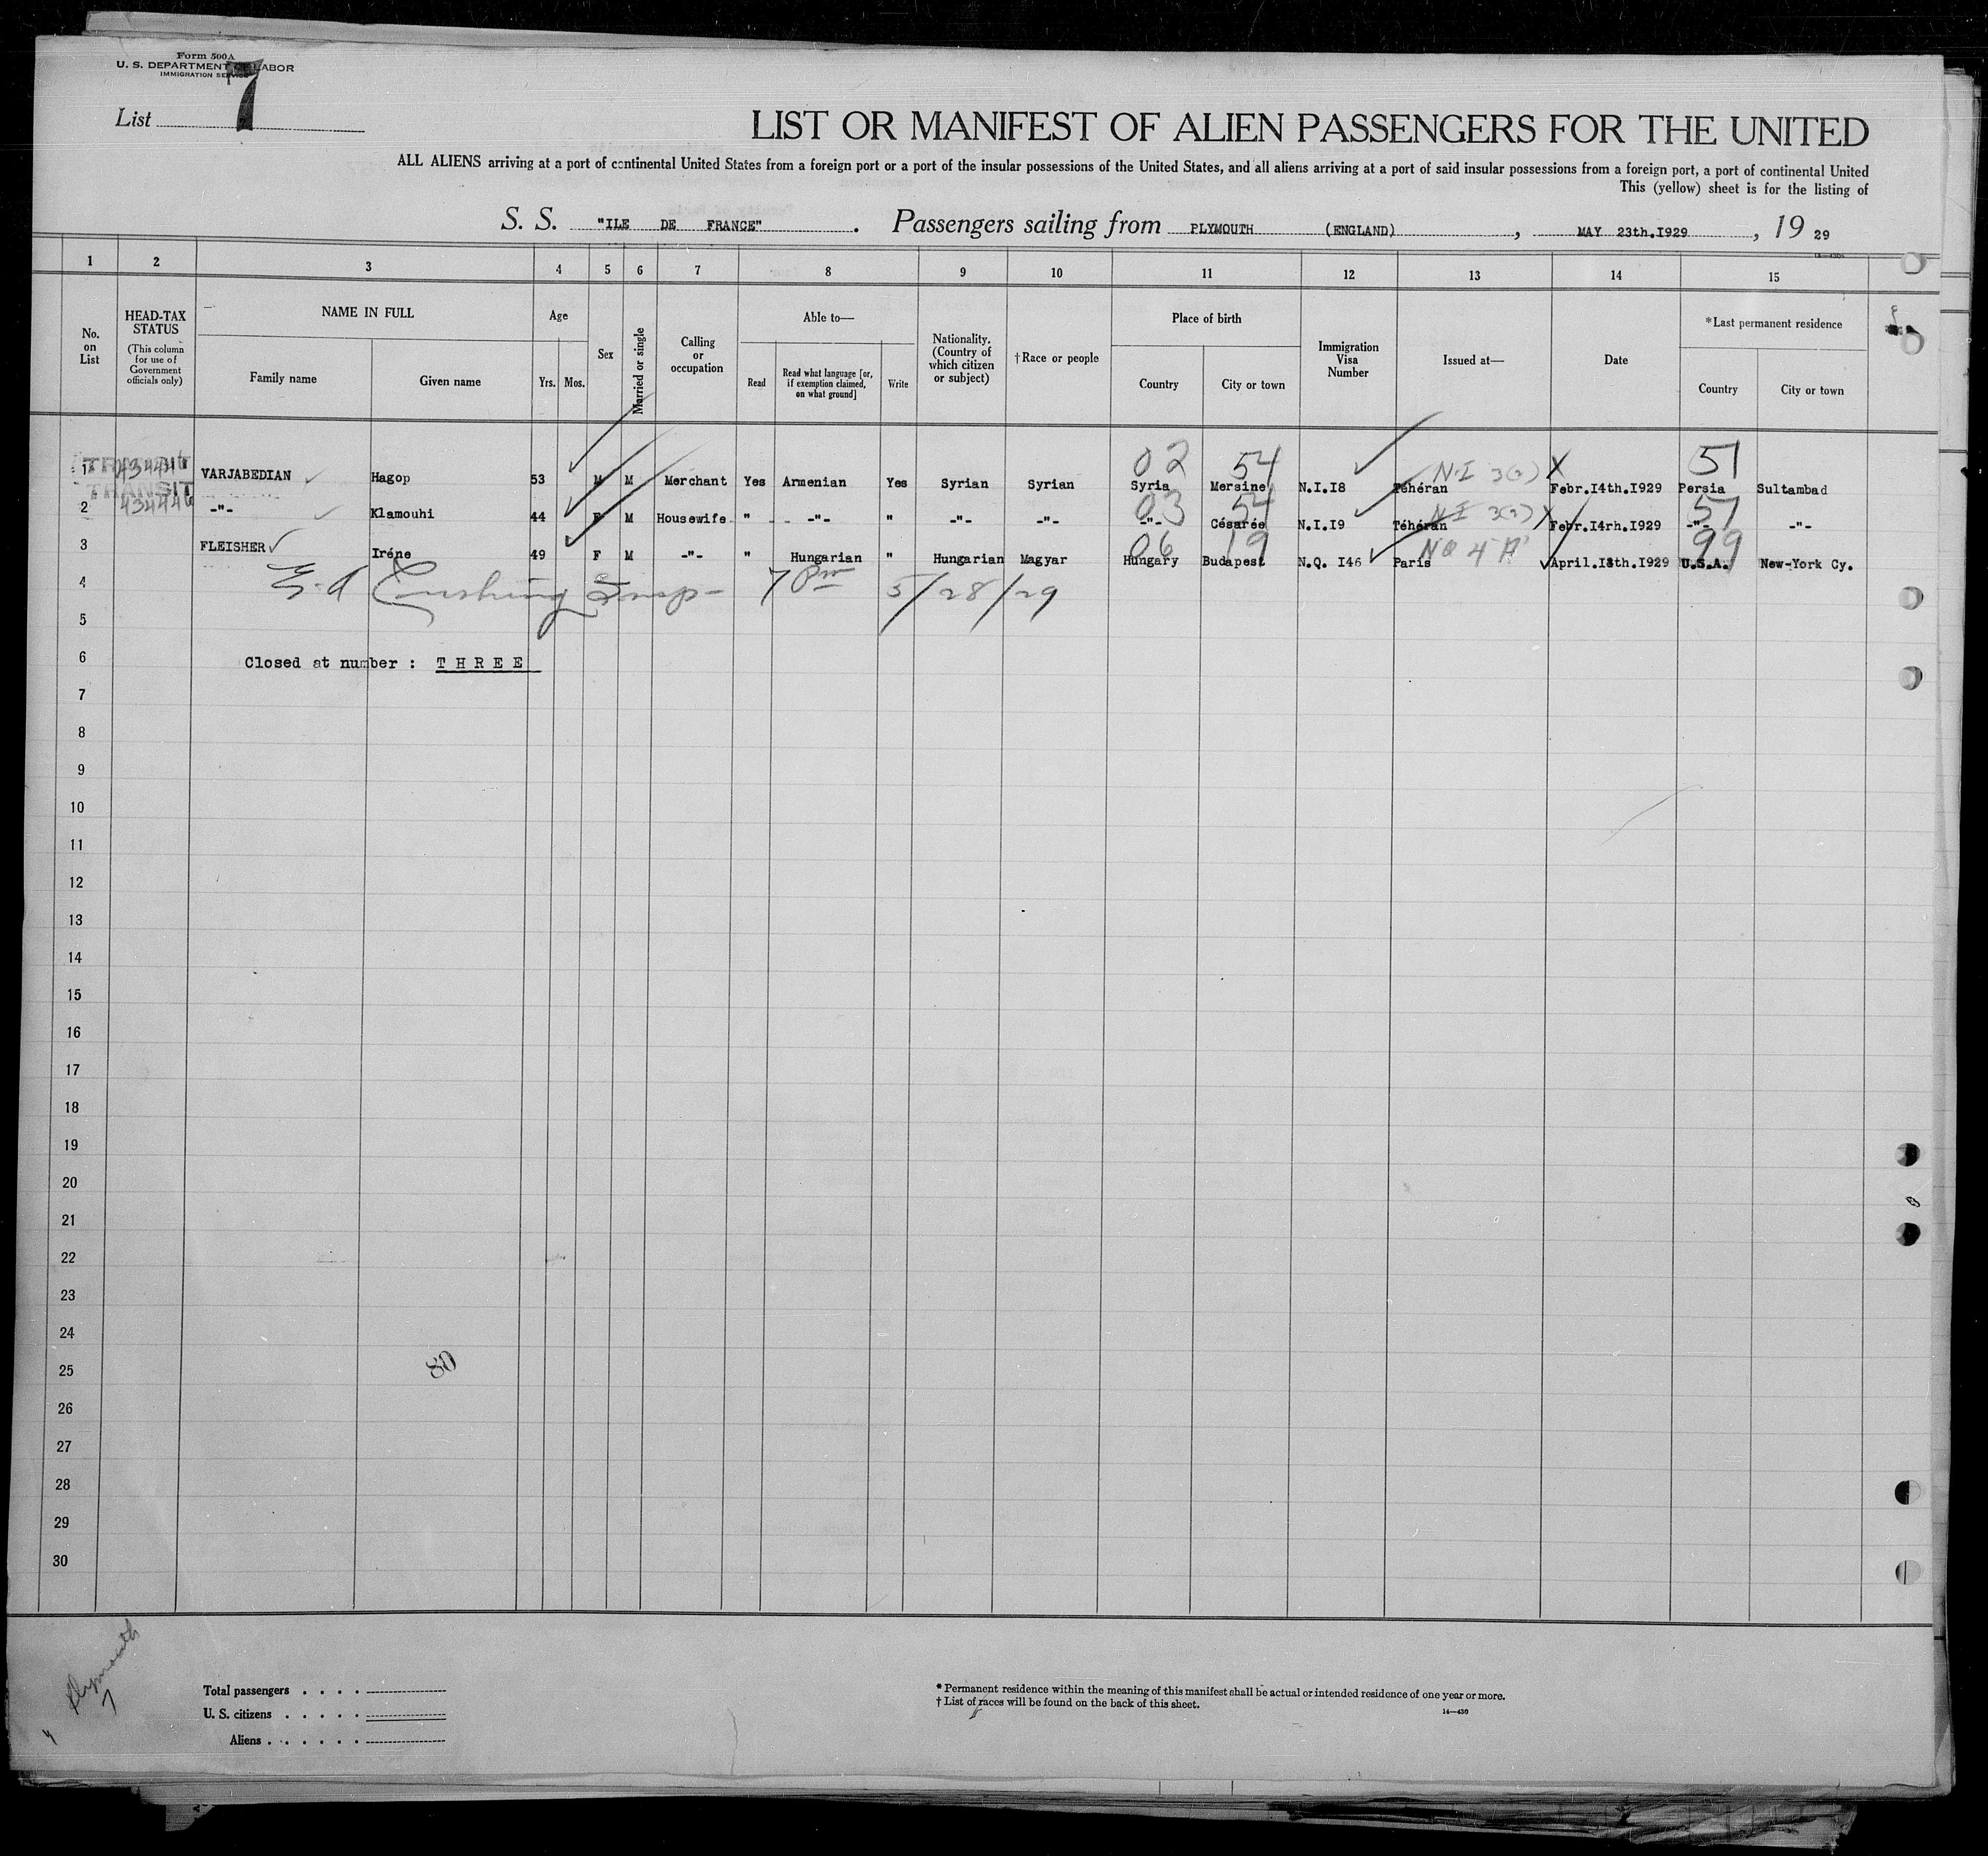 Form 500A
U. S. DEPARTMENT OF LABOR
IMMIGRATION SERVICE
List 7
LIST OR MANIFEST OF ALIEN PASSENGERS FOR THE UNITED
ALL ALIENS arriving at a port of continental United States from a foreign port or a port of the insular possessions of the United States, and all aliens arriving at a port of said insular possessions from a foreign port, a port of continental United
This (yellow) sheet is for the listing of
S. S. "ILE DE FRANCE" . Passengers sailing from PLYMOUTH (ENGLAND) , MAY 23th.I929 , 19 29
1 2 3 4 5 6 7 8 9 10 11 12 13 14 15
No. on List
HEAD-TAX STATUS (This column for use of Government officials only)
NAME IN FULL
Family name Given name
Age
Yrs. Mos.
Sex
Married or single
Calling or occupation
Able to—
Read Read what language [or, if exemption claimed, on what ground] Write
Nationality. (Country of which citizen or subject)
†Race or people
Place of birth
Country City or town
Immigration Visa Number
Issued at—
Date
*Last permanent residence
Country City or town
02 54 N.I 3(2) 51
1 TRANSIT 43444 VARJABEDIAN Hagop 53 M M Merchant Yes Armenian Yes Syrian Syrian Syria Mersine N.I.I8 Téhéran Febr.I4th.I929 Persia Sultambad
03 54 N.I 3(2) 51
2 TRANSIT 43444 -"- Klamouhi 44 F M Housewife " -"- " -"- -"- -"- Césarée N.I.I9 Téhéran Febr.I4rh.I929 -"- -"-
06 19 NQ 4 A 99
3 FLEISHER Iréne 49 F M -"- " Hungarian " Hungarian Magyar Hungary Budapest N.Q. I46 Paris April.I8th.I929 U.S.A. New-York Cy.
4 E. A Cushing Insp- 7 Pm 5/28/29
5
6 Closed at number : T H R E E
7
8
9
10
11
12
13
14
15
16
17
18
19
20
21
22
23
24
25 80
26
27
28
29
30
Plymouth
7
Total passengers
U. S. citizens
Aliens
* Permanent residence within the meaning of this manifest shall be actual or intended residence of one year or more.
† List of races will be found on the back of this sheet.
14—430